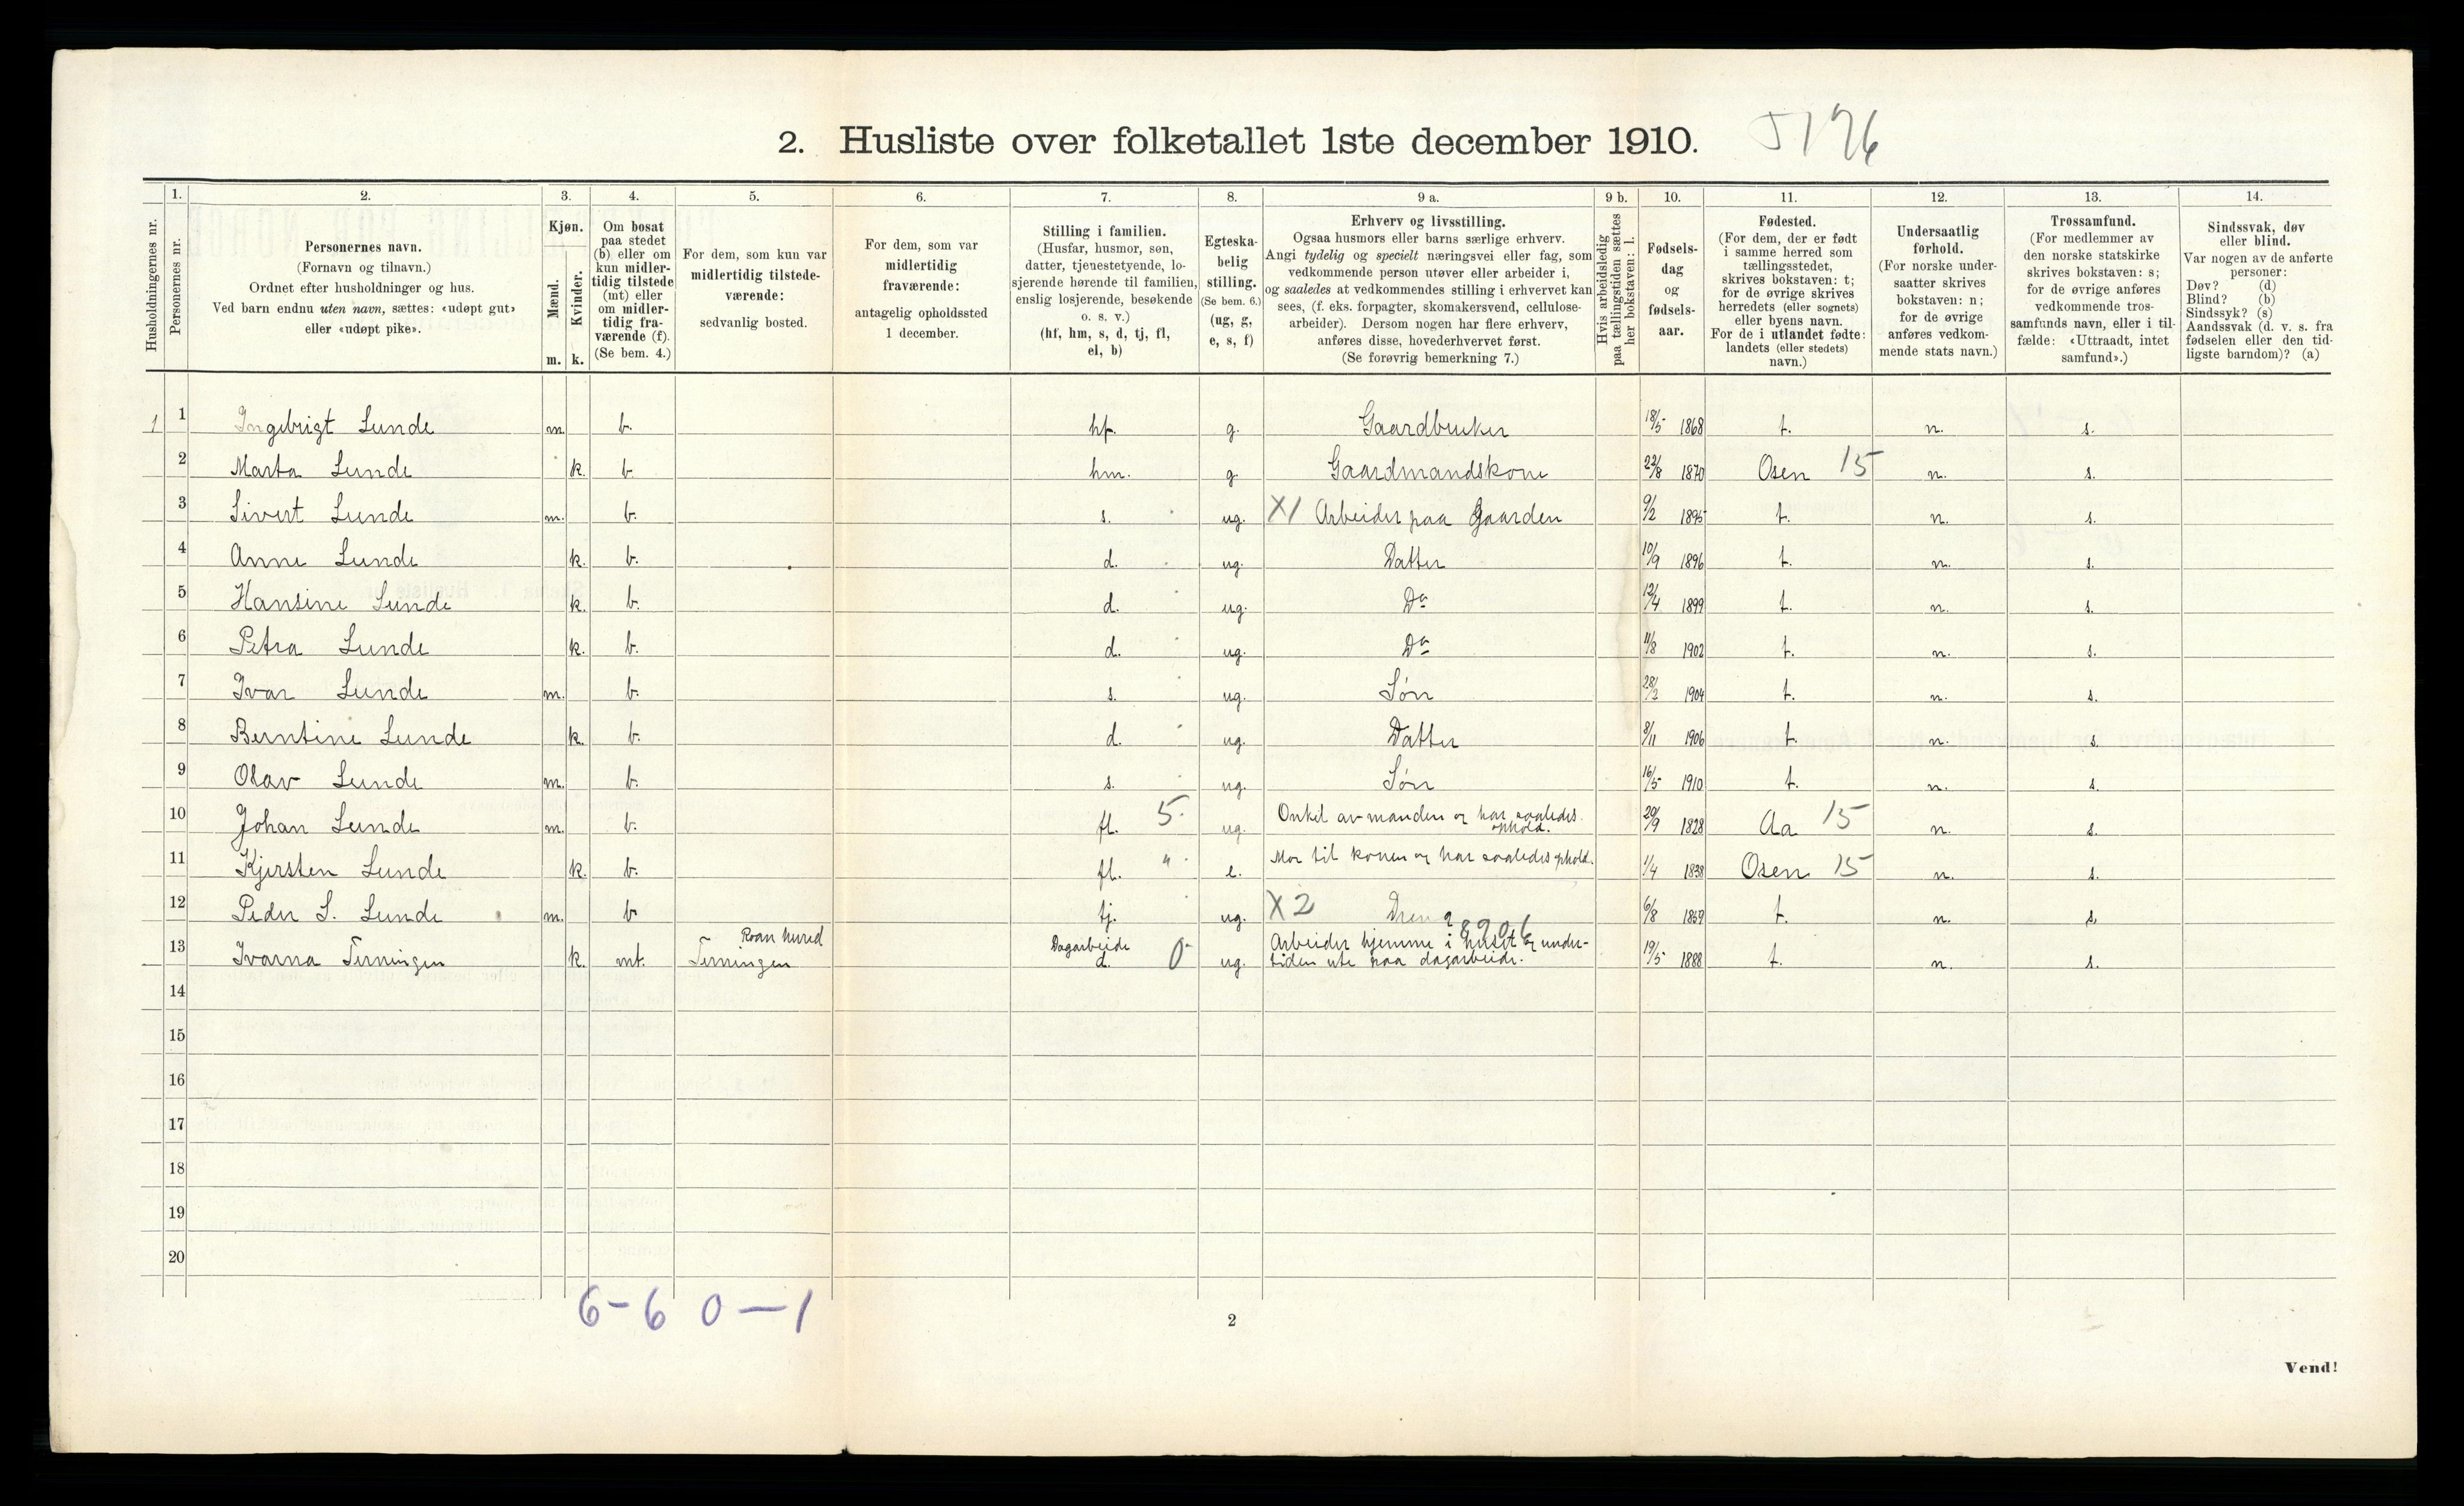 2. Husliste over folketallet 1ste december 1910. 5196
1. 2. 3. 4. 5. 6. 7. 8. 9 a. 9 b. 10. 11. 12. 13. 14.
Husholdningernes nr.
Personernes nr.
Personernes navn.
(Fornavn og tilnavn.)
Ordnet efter husholdninger og hus.
Ved barn endnu uten navn, sættes: «udøpt gut»
eller «udøpt pike».
Kjøn.
Mænd.
Kvinder.
m. k.
Om bosat
paa stedet
(b) eller om
kun midler-
tidig tilstede
(mt) eller
om midler-
tidig fra-
værende (f).
(Se bem. 4.)
For dem, som kun var
midlertidig tilstede-
værende:
sedvanlig bosted.
For dem, som var
midlertidig
fraværende:
antagelig opholdssted
1 december.
Stilling i familien.
(Husfar, husmor, søn,
datter, tjenestetyende, lo-
sjerende hørende til familien,
enslig losjerende, besøkende
o. s. v.)
(hf, hm, s, d, tj, fl,
el, b)
Egteska-
belig
stilling.
(Se bem. 6.)
(ug, g,
e, s, f)
Erhverv og livsstilling.
Ogsaa husmors eller barns særlige erhverv.
Angi tydelig og specielt næringsvei eller fag, som
vedkommende person utøver eller arbeider i,
og saaledes at vedkommendes stilling i erhvervet kan
sees, (f. eks. forpagter, skomakersvend, cellulose-
arbeider). Dersom nogen har flere erhverv,
anføres disse, hovederhvervet først.
(Se forøvrig bemerkning 7.)
Hvis arbeidsledig
paa tællingstiden sættes
her bokstaven: l.
Fødsels-
dag
og
fødsels-
aar.
Fødested.
(For dem, der er født
i samme herred som
tællingsstedet,
skrives bokstaven: t;
for de øvrige skrives
herredets (eller sognets)
eller byens navn.
For de i utlandet fødte:
landets (eller stedets)
navn.)
Undersaatlig
forhold.
(For norske under-
saatter skrives
bokstaven: n;
for de øvrige
anføres vedkom-
mende stats navn.)
Trossamfund.
(For medlemmer av
den norske statskirke
skrives bokstaven: s;
for de øvrige anføres
vedkommende tros-
samfunds navn, eller i til-
fælde: «Uttraadt, intet
samfund».)
Sindssvak, døv
eller blind.
Var nogen av de anførte
personer:
Døv? (d)
Blind? (b)
Sindssyk? (s)
Aandssvak (d. v. s. fra
fødselen eller den tid-
ligste barndom)? (a)
1 1 Ingebrigt Lunde m. b. hf. g. Gaardbruker 18/5 1868 t. n. s.
2 Marta Lunde k. b. hm. g. Gaardmandskone 22/8 1870 Osen 15 n. s.
3 Sivert Lunde m. b. s. ug. X1 Arbeider paa Gaarden 9/2 1895 t. n. s.
4 Anne Lunde k. b. d. ug. Datter 10/9 1896 t. n. s.
5 Hansine Lunde k. b. d. ug. Do 12/4 1899 t. n. s.
6 Petra Lunde k. b. d. ug. Do 11/8 1902 t. n. s.
7 Ivar Lunde m. b. s. ug. Søn 28/3 1904 t. n. s.
8 Berntine Lunde k. b. d. ug. Datter 8/11 1906 t. n. s.
9 Olav Lunde m. b. s. ug. Søn 16/5 1910 t. n. s.
10 Johan Lunde m. b. fl. 5. ug. Onkel av manden og har saaledes ophold. 20/9 1828 Aa 15 n. s.
11 Kjersten Lunde k. b. fl. " e. Mor til konen og har saaledes ophold. 1/4 1838 Osen 15 n. s.
12 Peder S. Lunde m. b tj. ug. X2 Dreng 6/8 1859 t. n. s.
Roan herred Dagarbeide 8906
13 Ivarna Terningen k. mt. Terningen d. 0 ug. Arbeider hjemme i huset og under-
tiden ute paa dagarbeide. 19/5 1888 t. n. s.
14
15
16
17
18
19
20
6-6 0-1
2
Vend!